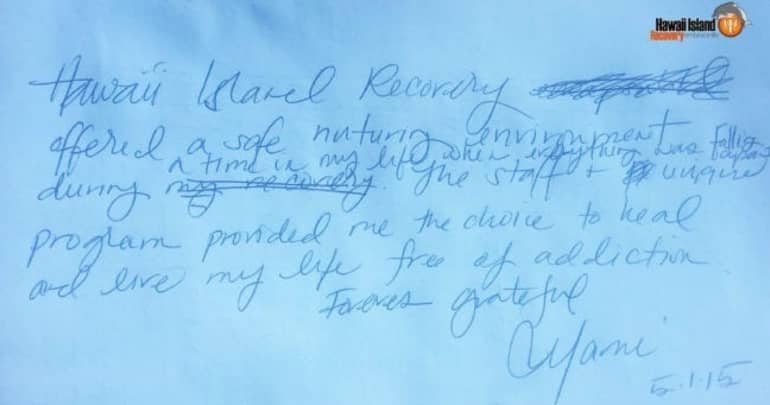 Hawaii Island
Recovery
Hawaii Island Recovery
offered a safe nuturing environment
a time in my life when everything was falling apart
during my recovery. The staff + unique
program provided me the choice to heal
and live my life free of addiction
Forever grateful
5.1.15